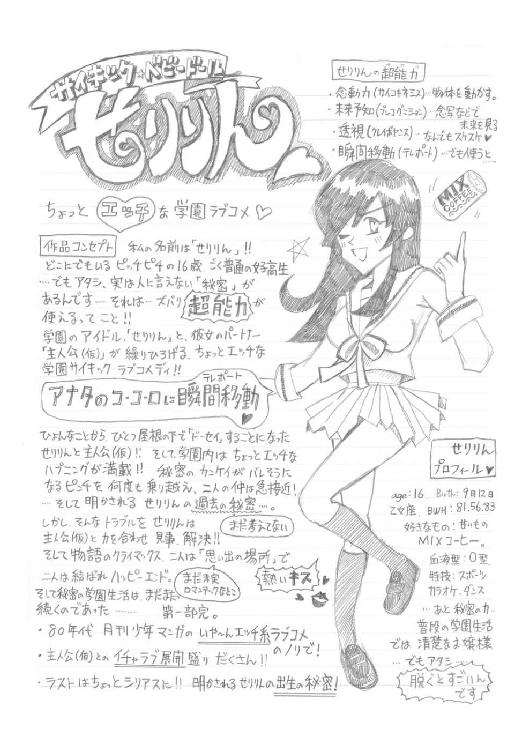 サイキック☆ベビードール
せりりん
ちょっとエッチな学園ラブコメ♡
せりりんの超能力
・念動力(サイコキネシス)…物体を動かす。
・未来予知(プレコグニション)…念写などで
未来を見る
・透視(クレイボヤンス)…なんでもスケスケ♥
・瞬間移動(テレポート)…でも使うと…
MIX
COFFEE
作品コンセプト 私の名前は「せりりん」!!
どこにでもいるピッチピチの16歳 ごく普通の女子高生
…でもアタシ、実は人に言えない「秘密」が
あるんです…それは…ズバリ 超能力が
使えるってこと!!
学園のアイドル、「せりりん」と、彼女のパートナー
「主人公(仮)」が繰りひろげる、ちょっとエッチな
学園サイキックラブコメディ!!
アナタのコ・コ・ロに瞬間移動
テレポート
ひょんなことから、ひとつ屋根の下で「ドーセイ」することになった
せりりんと主人公(仮)!! そして学園内はちょっとエッチな
ハプニングが満載!! 秘密のカンケイがバレそうに
なるピンチを何度も乗り越え、二人の仲は急接近!
…そして明かされるせりりんの過去の秘密…。
しかし、そんなトラブルをせりりんは
まだ考えてない
主人公(仮)と力を合わせ見事、解決!!
そして物語のクライマックス、二人は「思い出の場所」で
まだ未定
ロマンチックなとこ
熱いキス
二人は結ばれハッピーエンド。
そして秘密の学園生活は、まだまだ
続くのであった……… 第一部完。
・80年代 月刊少年マンガのいや〜んエッチ系ラブコメ
のノリで!
・主人公(仮)とのイチャラブ展開盛りだくさん!!
・ラストはちょっとシリアスに!! 明かされるせりりんの出生の秘密!
せりりん
プロフィール♥
age:16 Birth:9月12日
乙女座、BWH:81.56.83
好きなもの:甘いもの
MIXコーヒー。
血液型:O型
特技:スポーツ
カラオケ、ダンス
…あと秘密の力…
普段の学園生活
では清楚なお嬢様
…でもアタシ…
脱ぐとすごいん
です